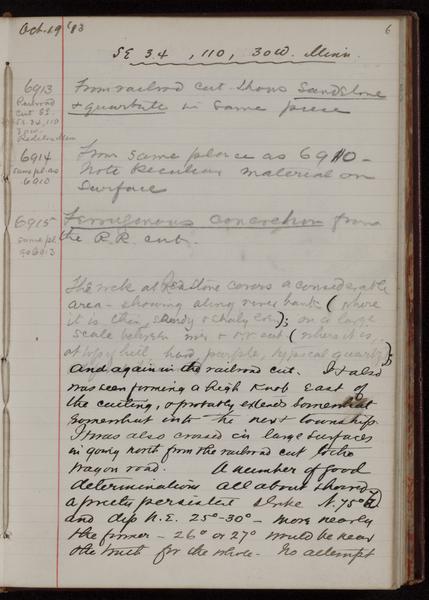 Oct. 19 '93
6
SE 34, 110, 30W. Minn.
6913
Railroad
cut SE.
SE. 34, 110
30W.
From railroad cut. Shows Sandstone
& quartzite in same piece
6914
same pl. as
6910
From same place as 6910 -
Note peculiar material on
Surface
6915
same pl.
as 6913
Ferrugenous concretion from
the R.R. cut.
The rock at Redstone covers a considerable
area - showing along river bank (where
it is thin, sandy & shaly); on a large
scale between river & R.R. cut (where it is,
hill hard, purple, typical quartz);
and again in the railroad cut. It also
was seen forming a high knob east of
the cutting, & probably extends somewhat
somewhat into the next township.
It was also crossed in large surfaces
in going north from the railroad cut to the
wagon road. A number of good
determinations all about showed
a pretty persistent strike N. 75° E
and dip N.E. 25°-30° - more nearly
the former - 26° or 27° would be near
the truth for the whole. No attempt